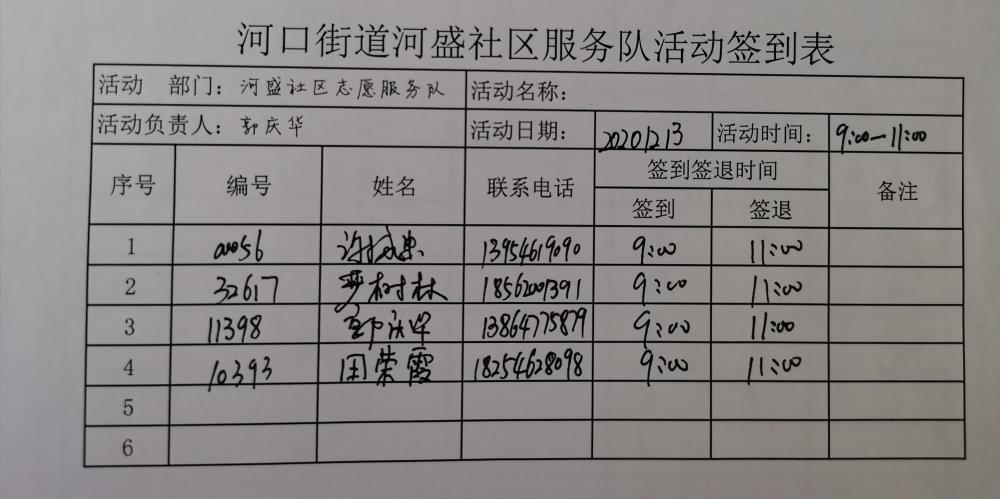 河口街道河盛社区服务队活动签到表
活动 部门: 河盛社区志愿服务队 活动名称:
活动负责人: 郭庆华 活动日期: 20201213 活动时间: 9:00-11:00
序号 编号 姓名 联系电话 签到签退时间 备注
签到 签退
1 00056 13954619090 9:00 11:00
2 32617 罗树林 18562001391 9:00 11:00
3 11398 郭庆华 13864775879 9:00 11:00
4 10393 周荣霞 18254628098 9:00 11:00
5
6